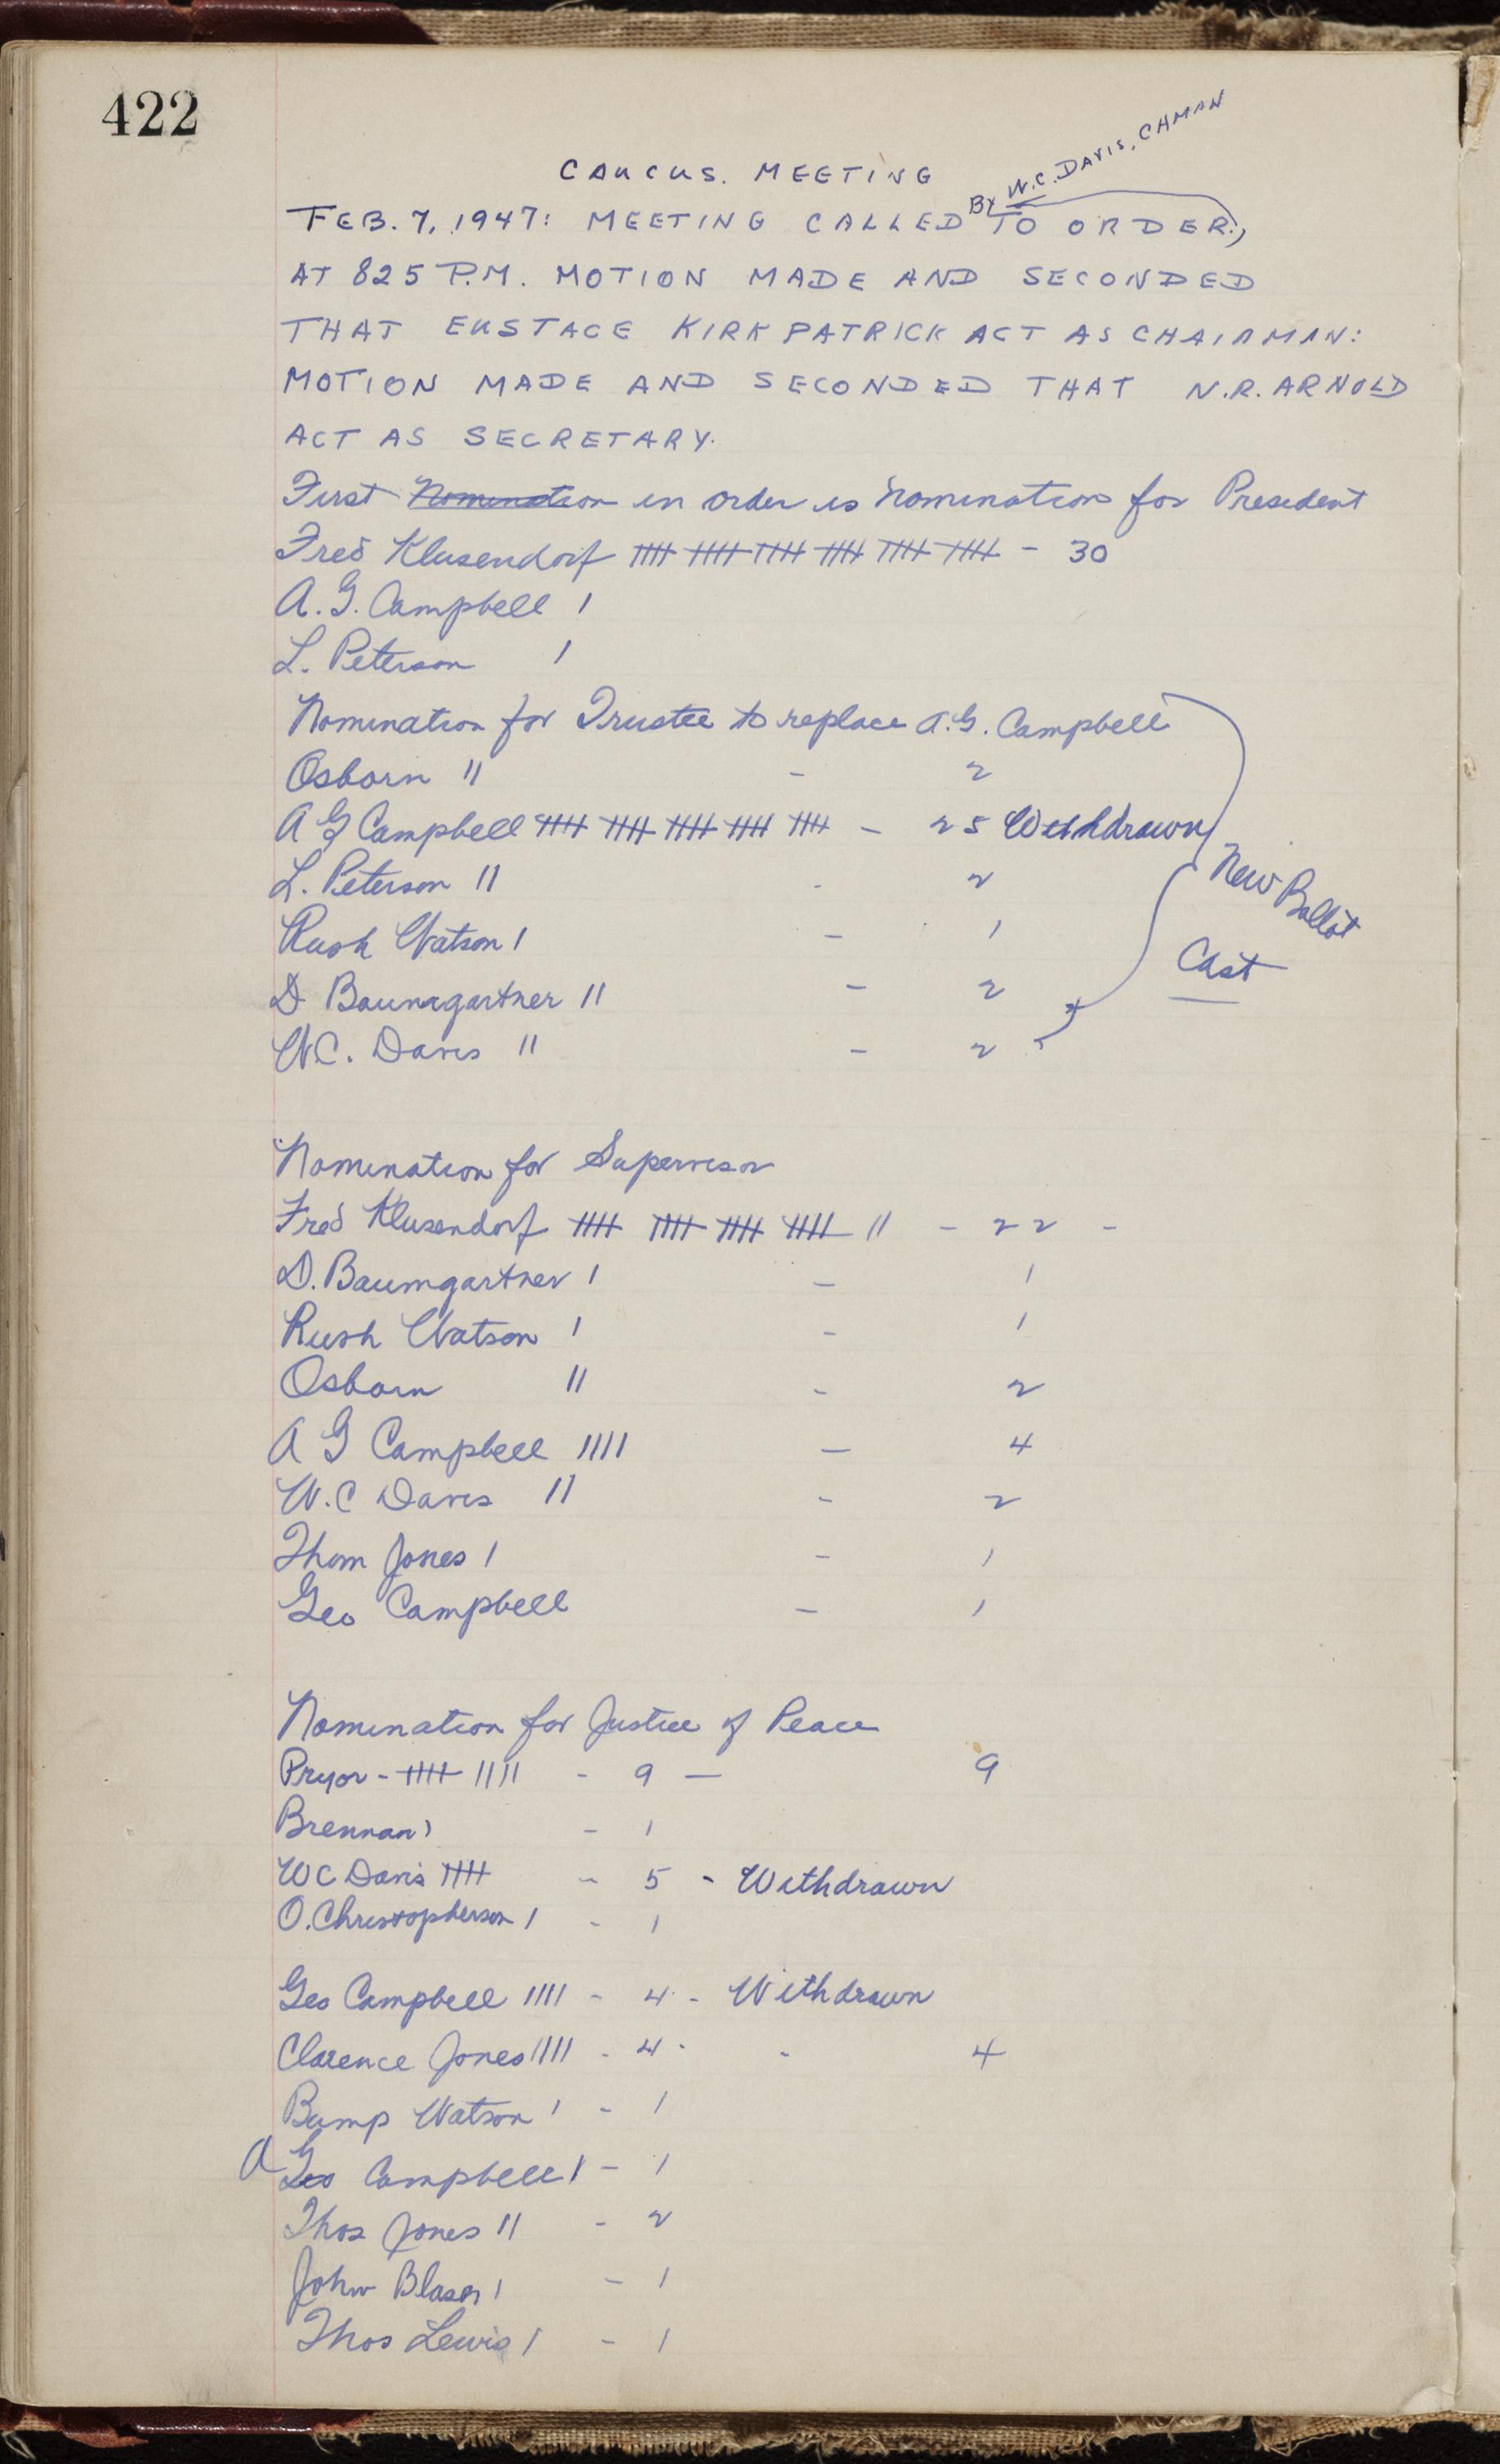 422
CAUCUS. MEETING
BY W.C. DAVIS, CHMAN
FEB. 7, 1947: MEETING CALLED TO ORDER,
AT 825 P.M. MOTION MADE AND SECONDED
THAT EUSTACE KIRKPATRICK ACT AS CHAIRMAN:
MOTION MADE AND SECONDED THAT N.R. ARNOLD
ACT AS SECRETARY.
First Nomination in order is nominations for President
Fred Klusendorf |||| |||| |||| |||| |||| |||| - 30
A.G. Campbell 1
L. Peterson 1
Nomination for Trustee to replace A.G. Campbell
Osborn 11 - 2
A G Campbell |||| |||| |||| |||| |||| - 25 Withdrawn
L. Peterson 11 - 2
Rush Watson 1 - 1
D Baumgartner 11 - 2
W.C. Davis 11 - 2
New Ballot
Cast
Nomination for Supervisor
Fred Klusendorf |||| |||| |||| |||| 11 - 22 -
D. Baumgartner 1 - 1
Rush Watson 1 - 1
Osborn 11 - 2
A G Campbell 1111 - 4
W.C Davis 11 - 2
Thom Jones 1 - 1
Geo Campbell - 1
Nomination for Justice of Peace
Pryor - |||| 1111 - 9 - 9
Brennan 1 - 1
WC Davis |||| - 5 - Withdrawn
O. Christopherson 1 - 1
Geo Campbell 1111 - 4 - Withdrawn
Clarence Jones 1111 - 4 - - 4
Bump Watson 1 - 1
A Geo Campbell 1 - 1
Thos Jones 11 - 2
John Blaser 1 - 1
Thos Lewis 1 - 1